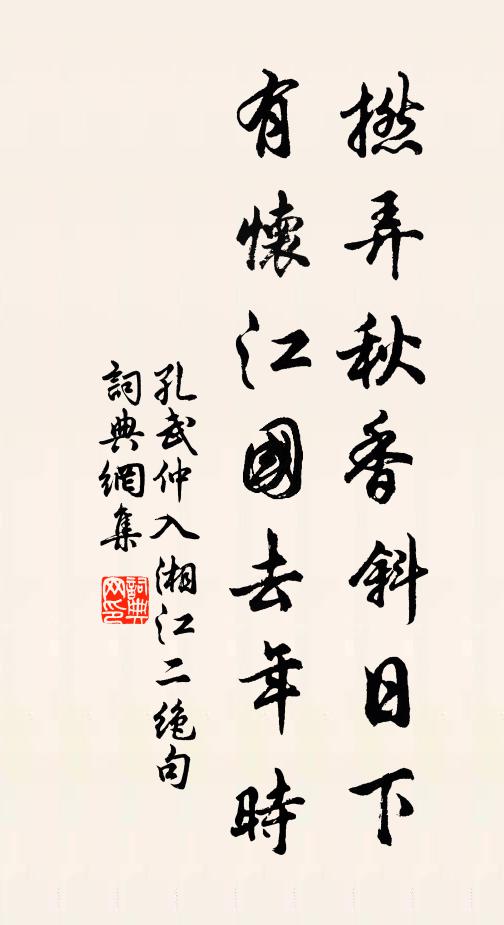 撚弄秋香斜日下
有懷江國去年時
孔武仲入湘江二絶句
詞典網集
詞典
网印